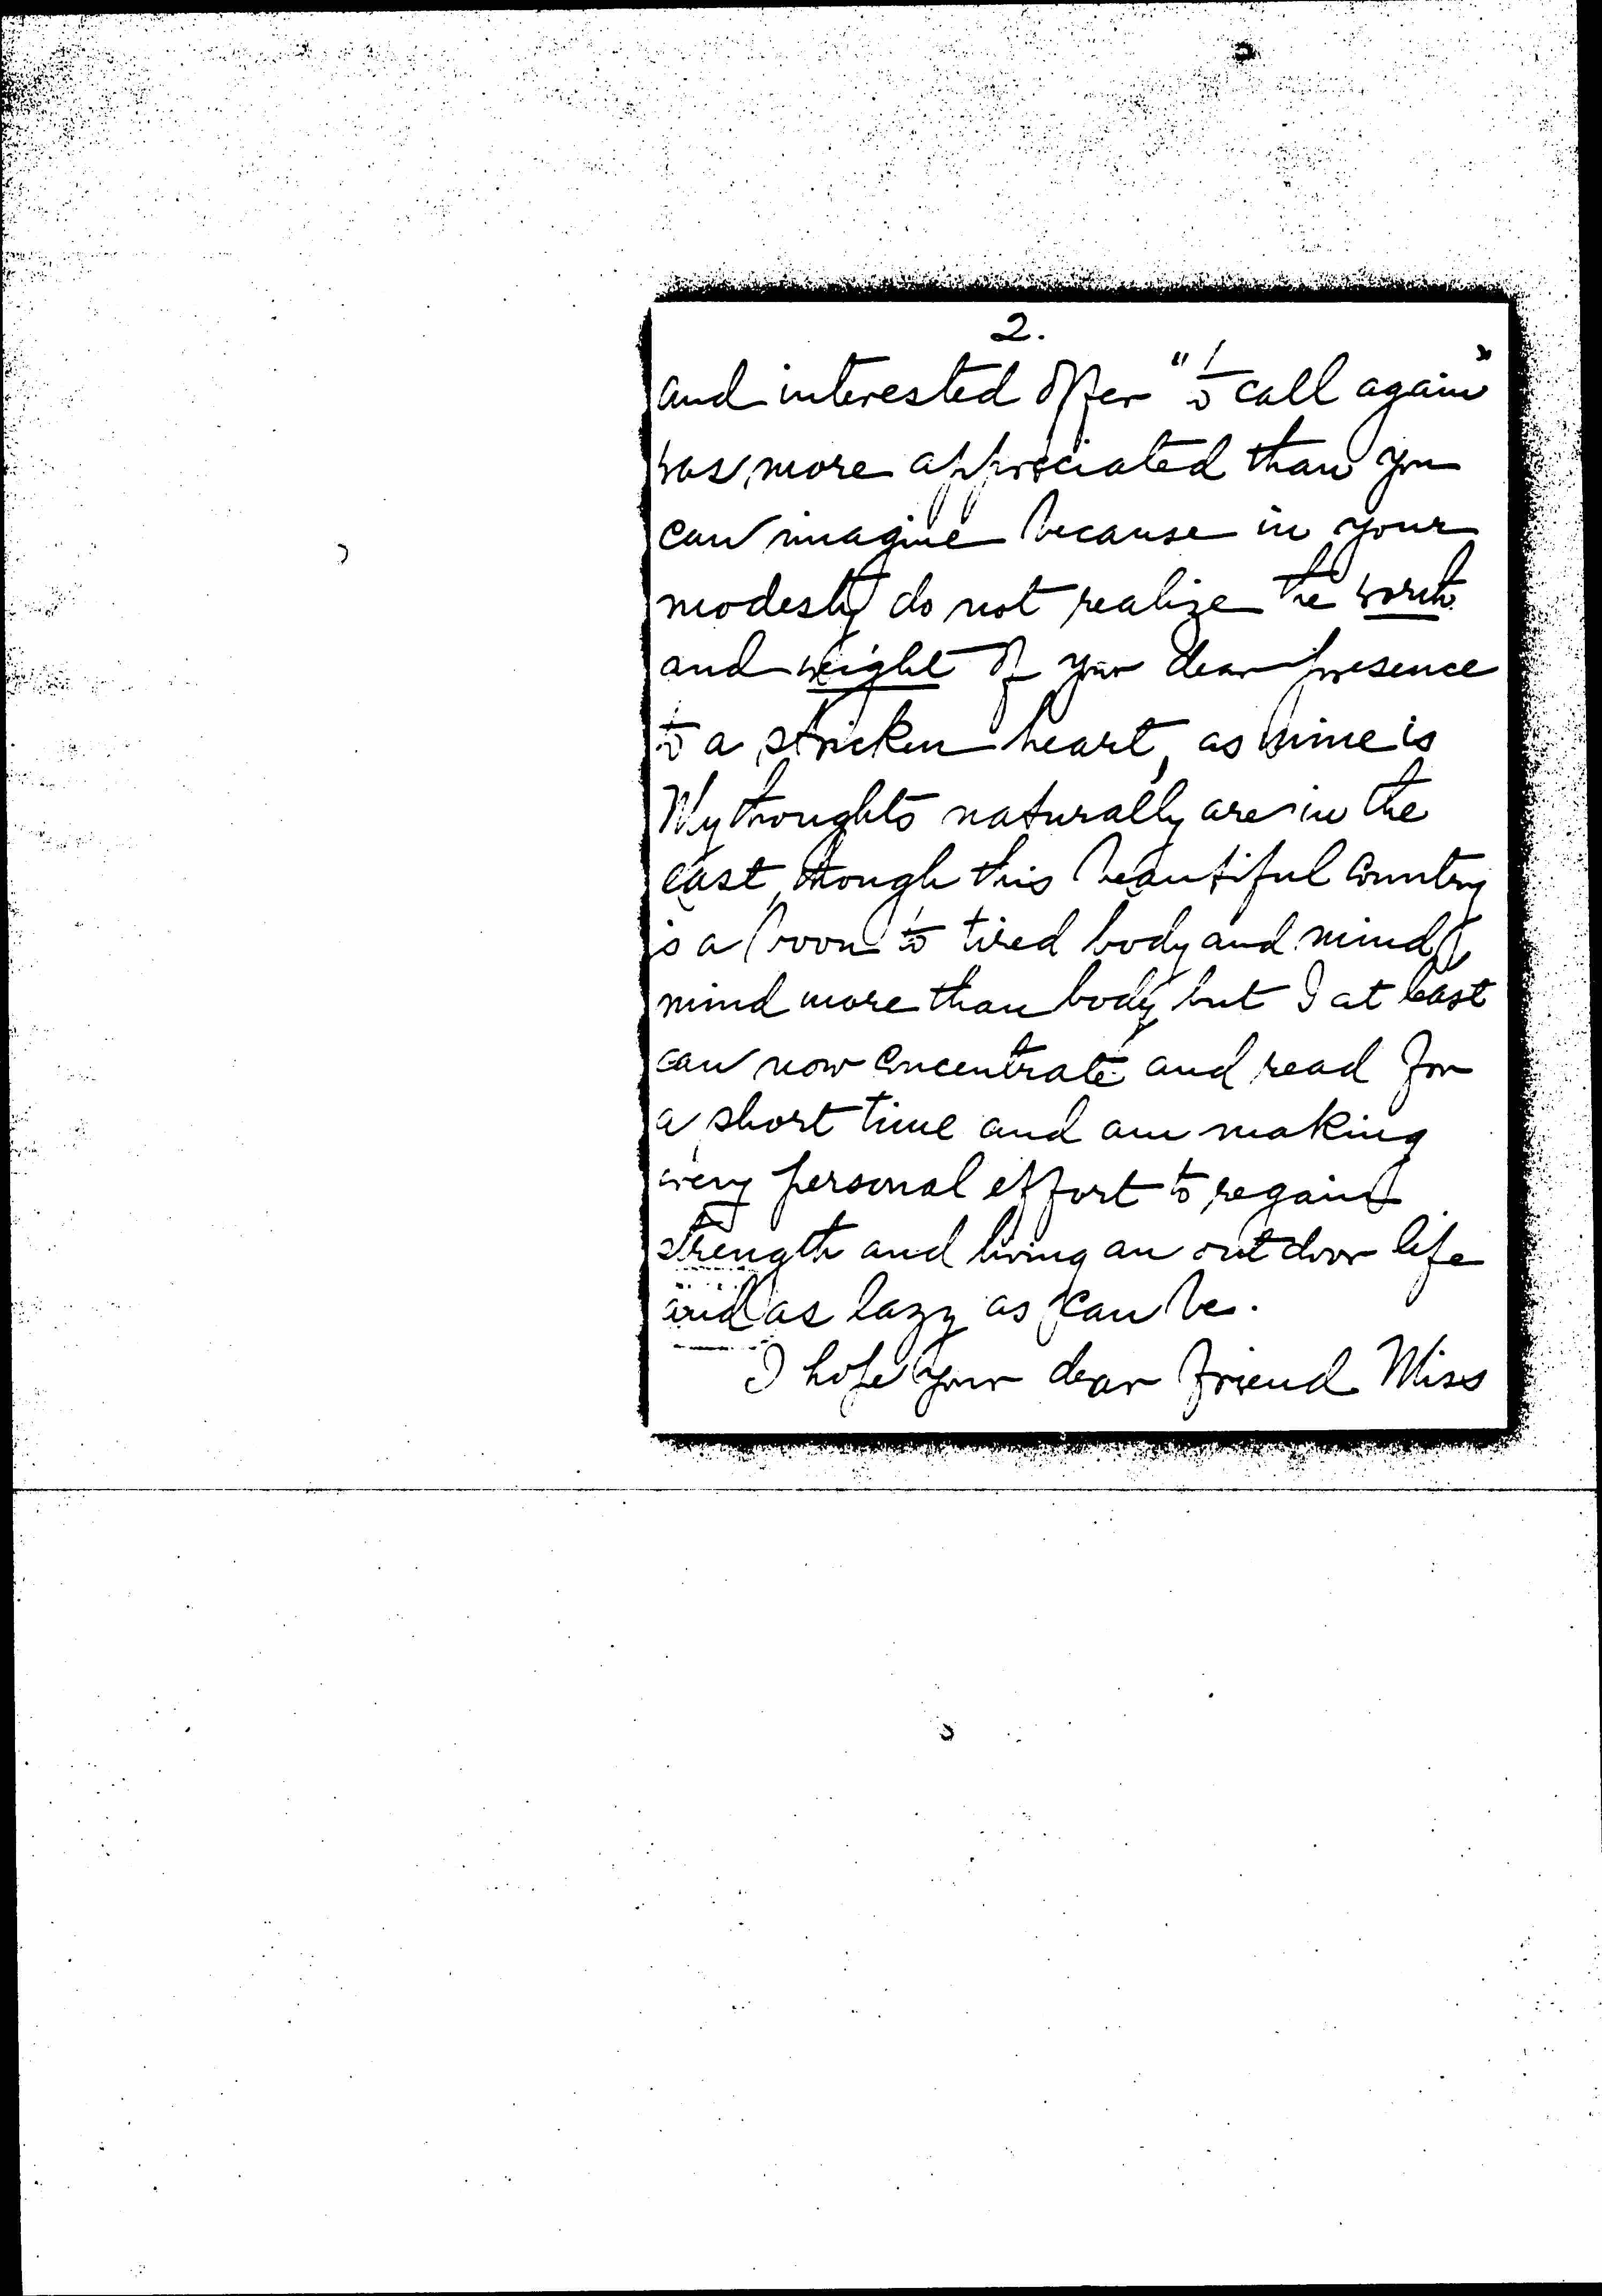 2.
and interested offer "to call again"
was more appreciated than you
can imagine because in your
modesty do not realize the worth
and weight of your dear presence
to a stricken heart, as mine is
My thoughts naturally are in the
east, though this beautiful country
is a boon to tired body and mind,
mind more than body, but I at least
can now concentrate and read for
a short time and am making
every personal effort to regain
strength and living an outdoor life
and as lazy as can be.
I hope your dear friend Miss